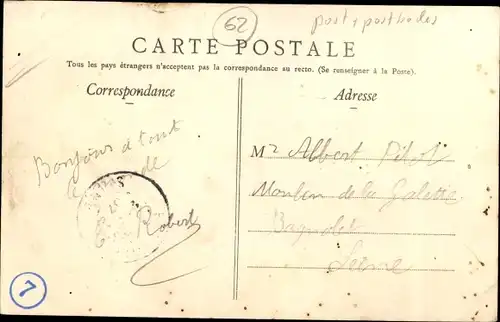 62
CARTE POSTALE
Tous les pays étrangers n'acceptent pas la correspondance au recto. (Se renseigner à la Poste).
Correspondance
Adresse
Bonjour à tout
Mr Albert
Moulin de la Galette
Robert
Bagnolet
Seine
7